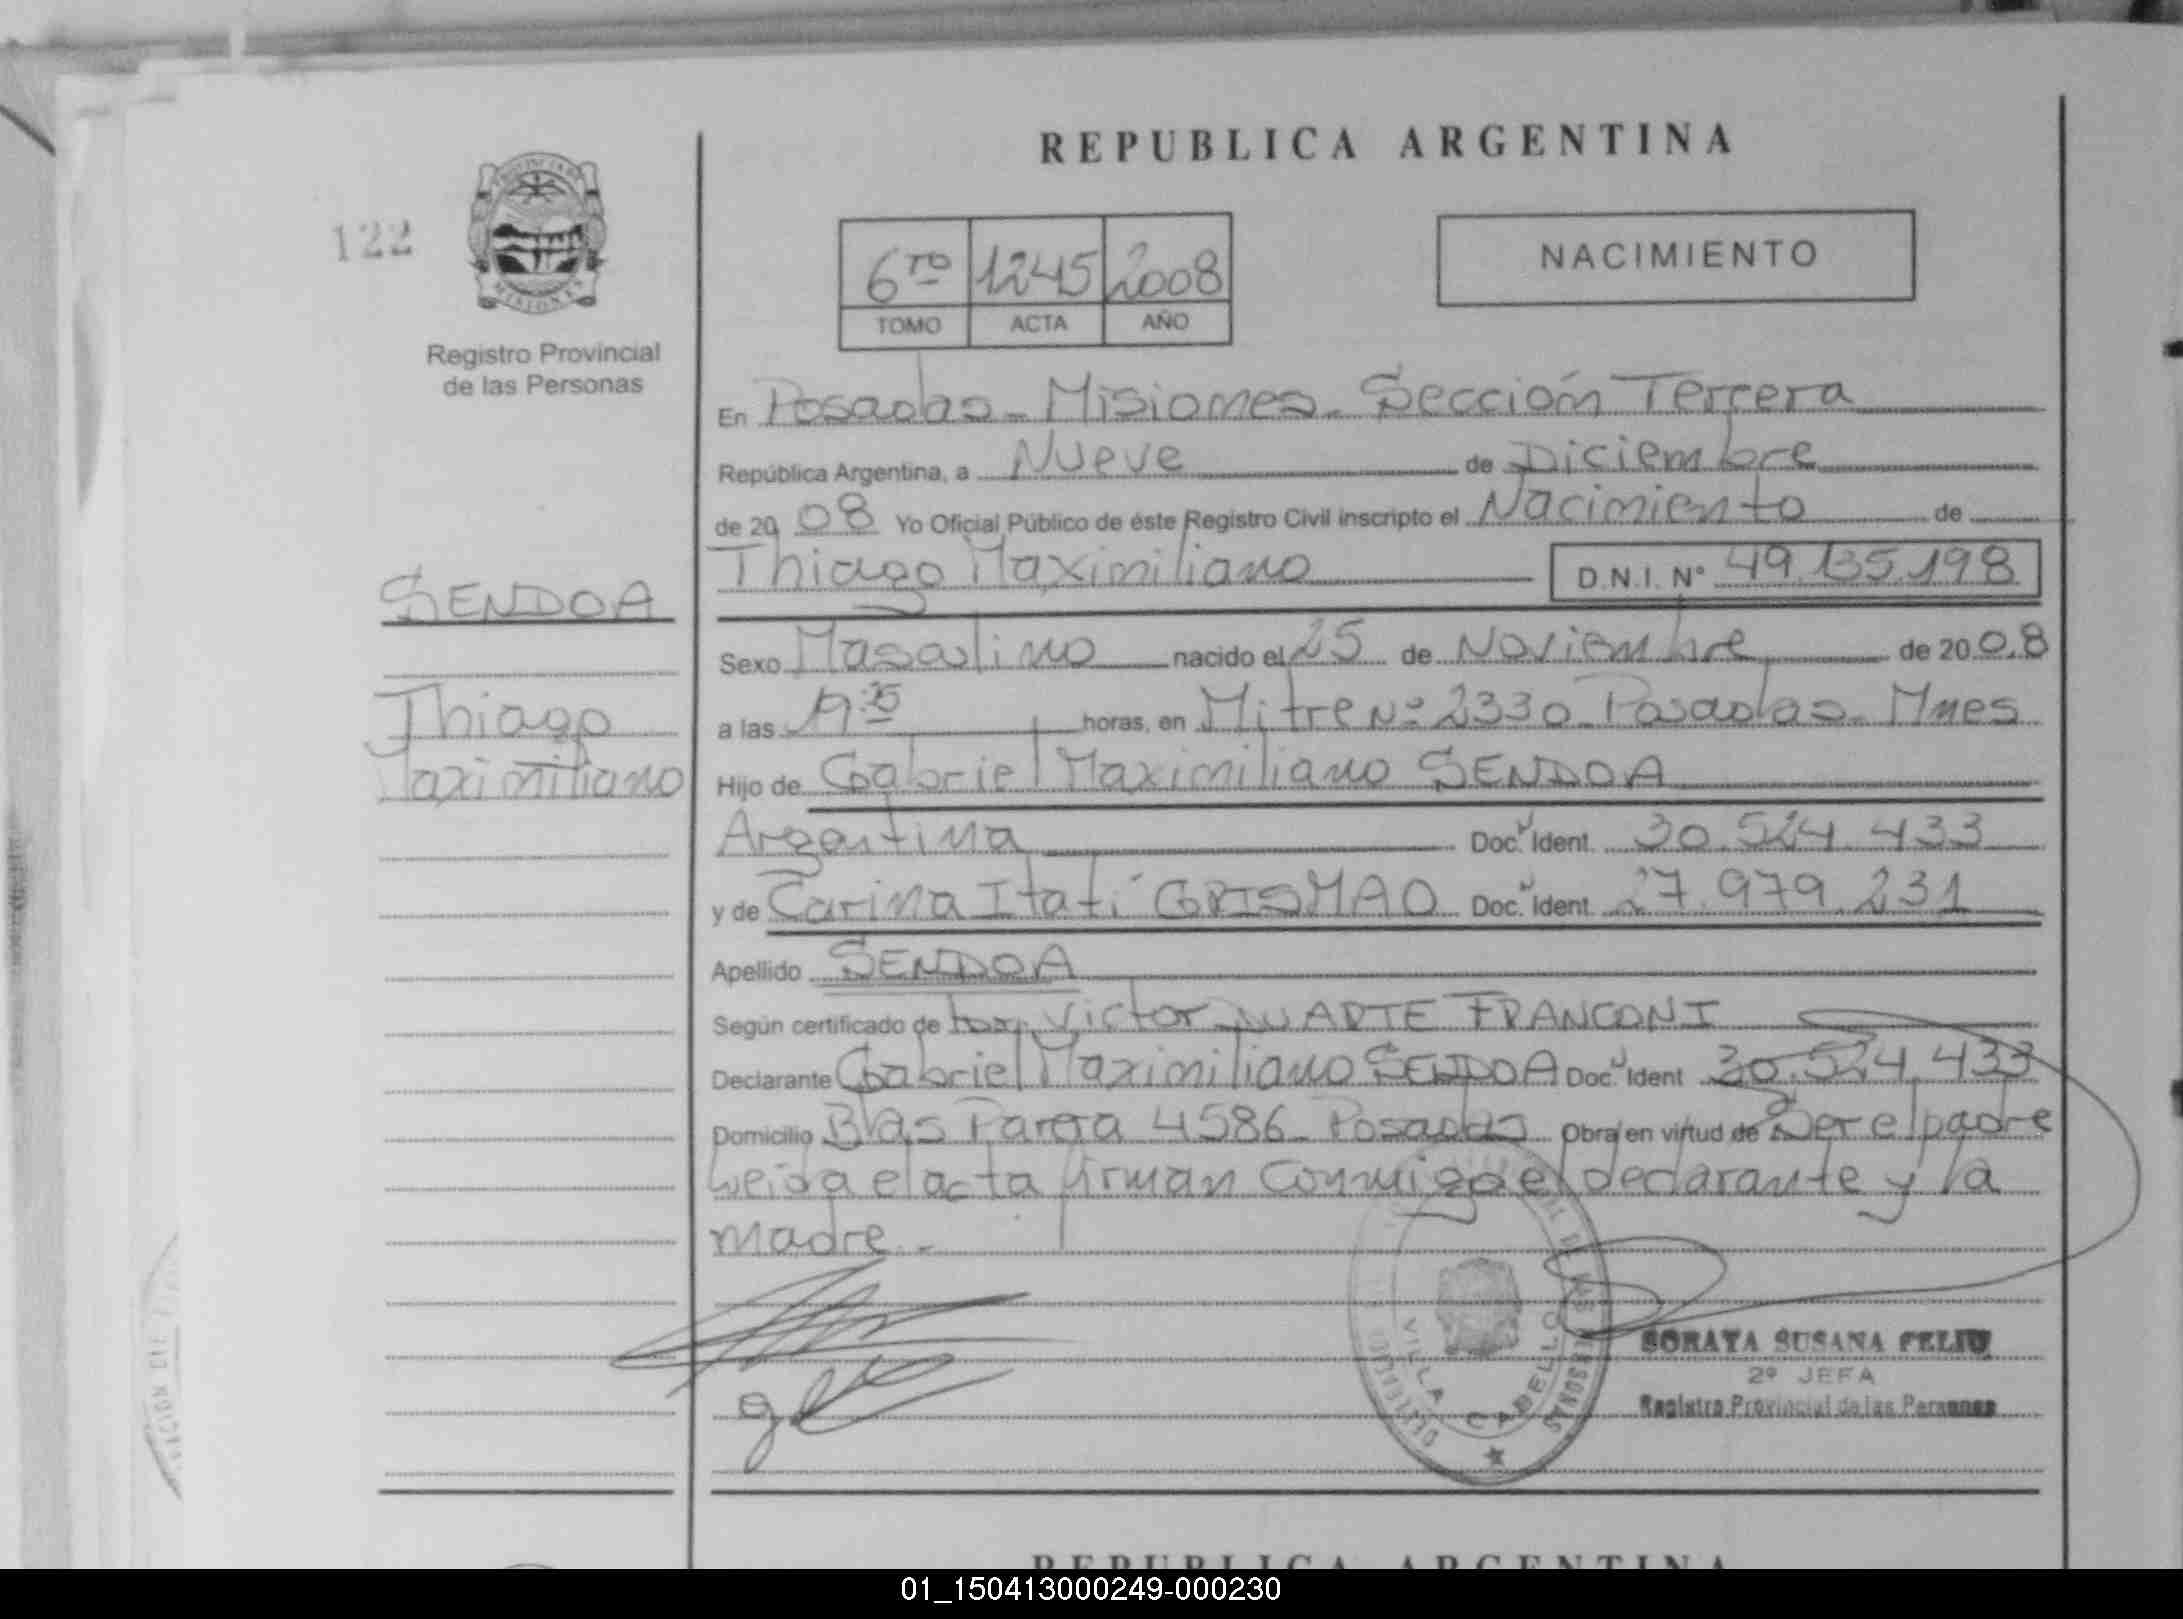 REPUBLICA ARGENTINA
122
PROVINCIA DE
MISIONES
Registro Provincial
de las Personas
6TO 1245 2008
TOMO ACTA AÑO
NACIMIENTO
En Posadas - Misiones - Sección Tercera
República Argentina, a Nueve de Diciembre
de 2008 Yo Oficial Público de éste Registro Civil inscripto el Nacimiento de
Thiago Maximiliano D.N.I. Nº 49.135.198
SENDOA
Sexo Masculino nacido el 25 de Noviembre de 2008
Thiago
a las horas, en Mitre Nº 2330 Posadas - Mnes
Maximiliano
Hijo de Gabriel Maximiliano SENDOA
Argentina Doc. Ident. 30.524.433
y de Carina Itatí GRISMAO Doc. Ident. 27.979.231
Apellido SENDOA
Según certificado de Víctor DUARTE FRANCONI
Declarante Gabriel Maximiliano SENDOA Doc. Ident 30.524.433
Domicilio Blas Parera 4586 - Posadas Obra en virtud de Ser el padre
Leida el acta firman Conmigo el declarante y la
madre -
DE LAS PERSONAS
VILLA CABELLO
SORAYA SUSANA FELIU
2º JEFA
Registro Provincial de las Personas
REPUBLICA ARGENTINA
01_150413000249-000230